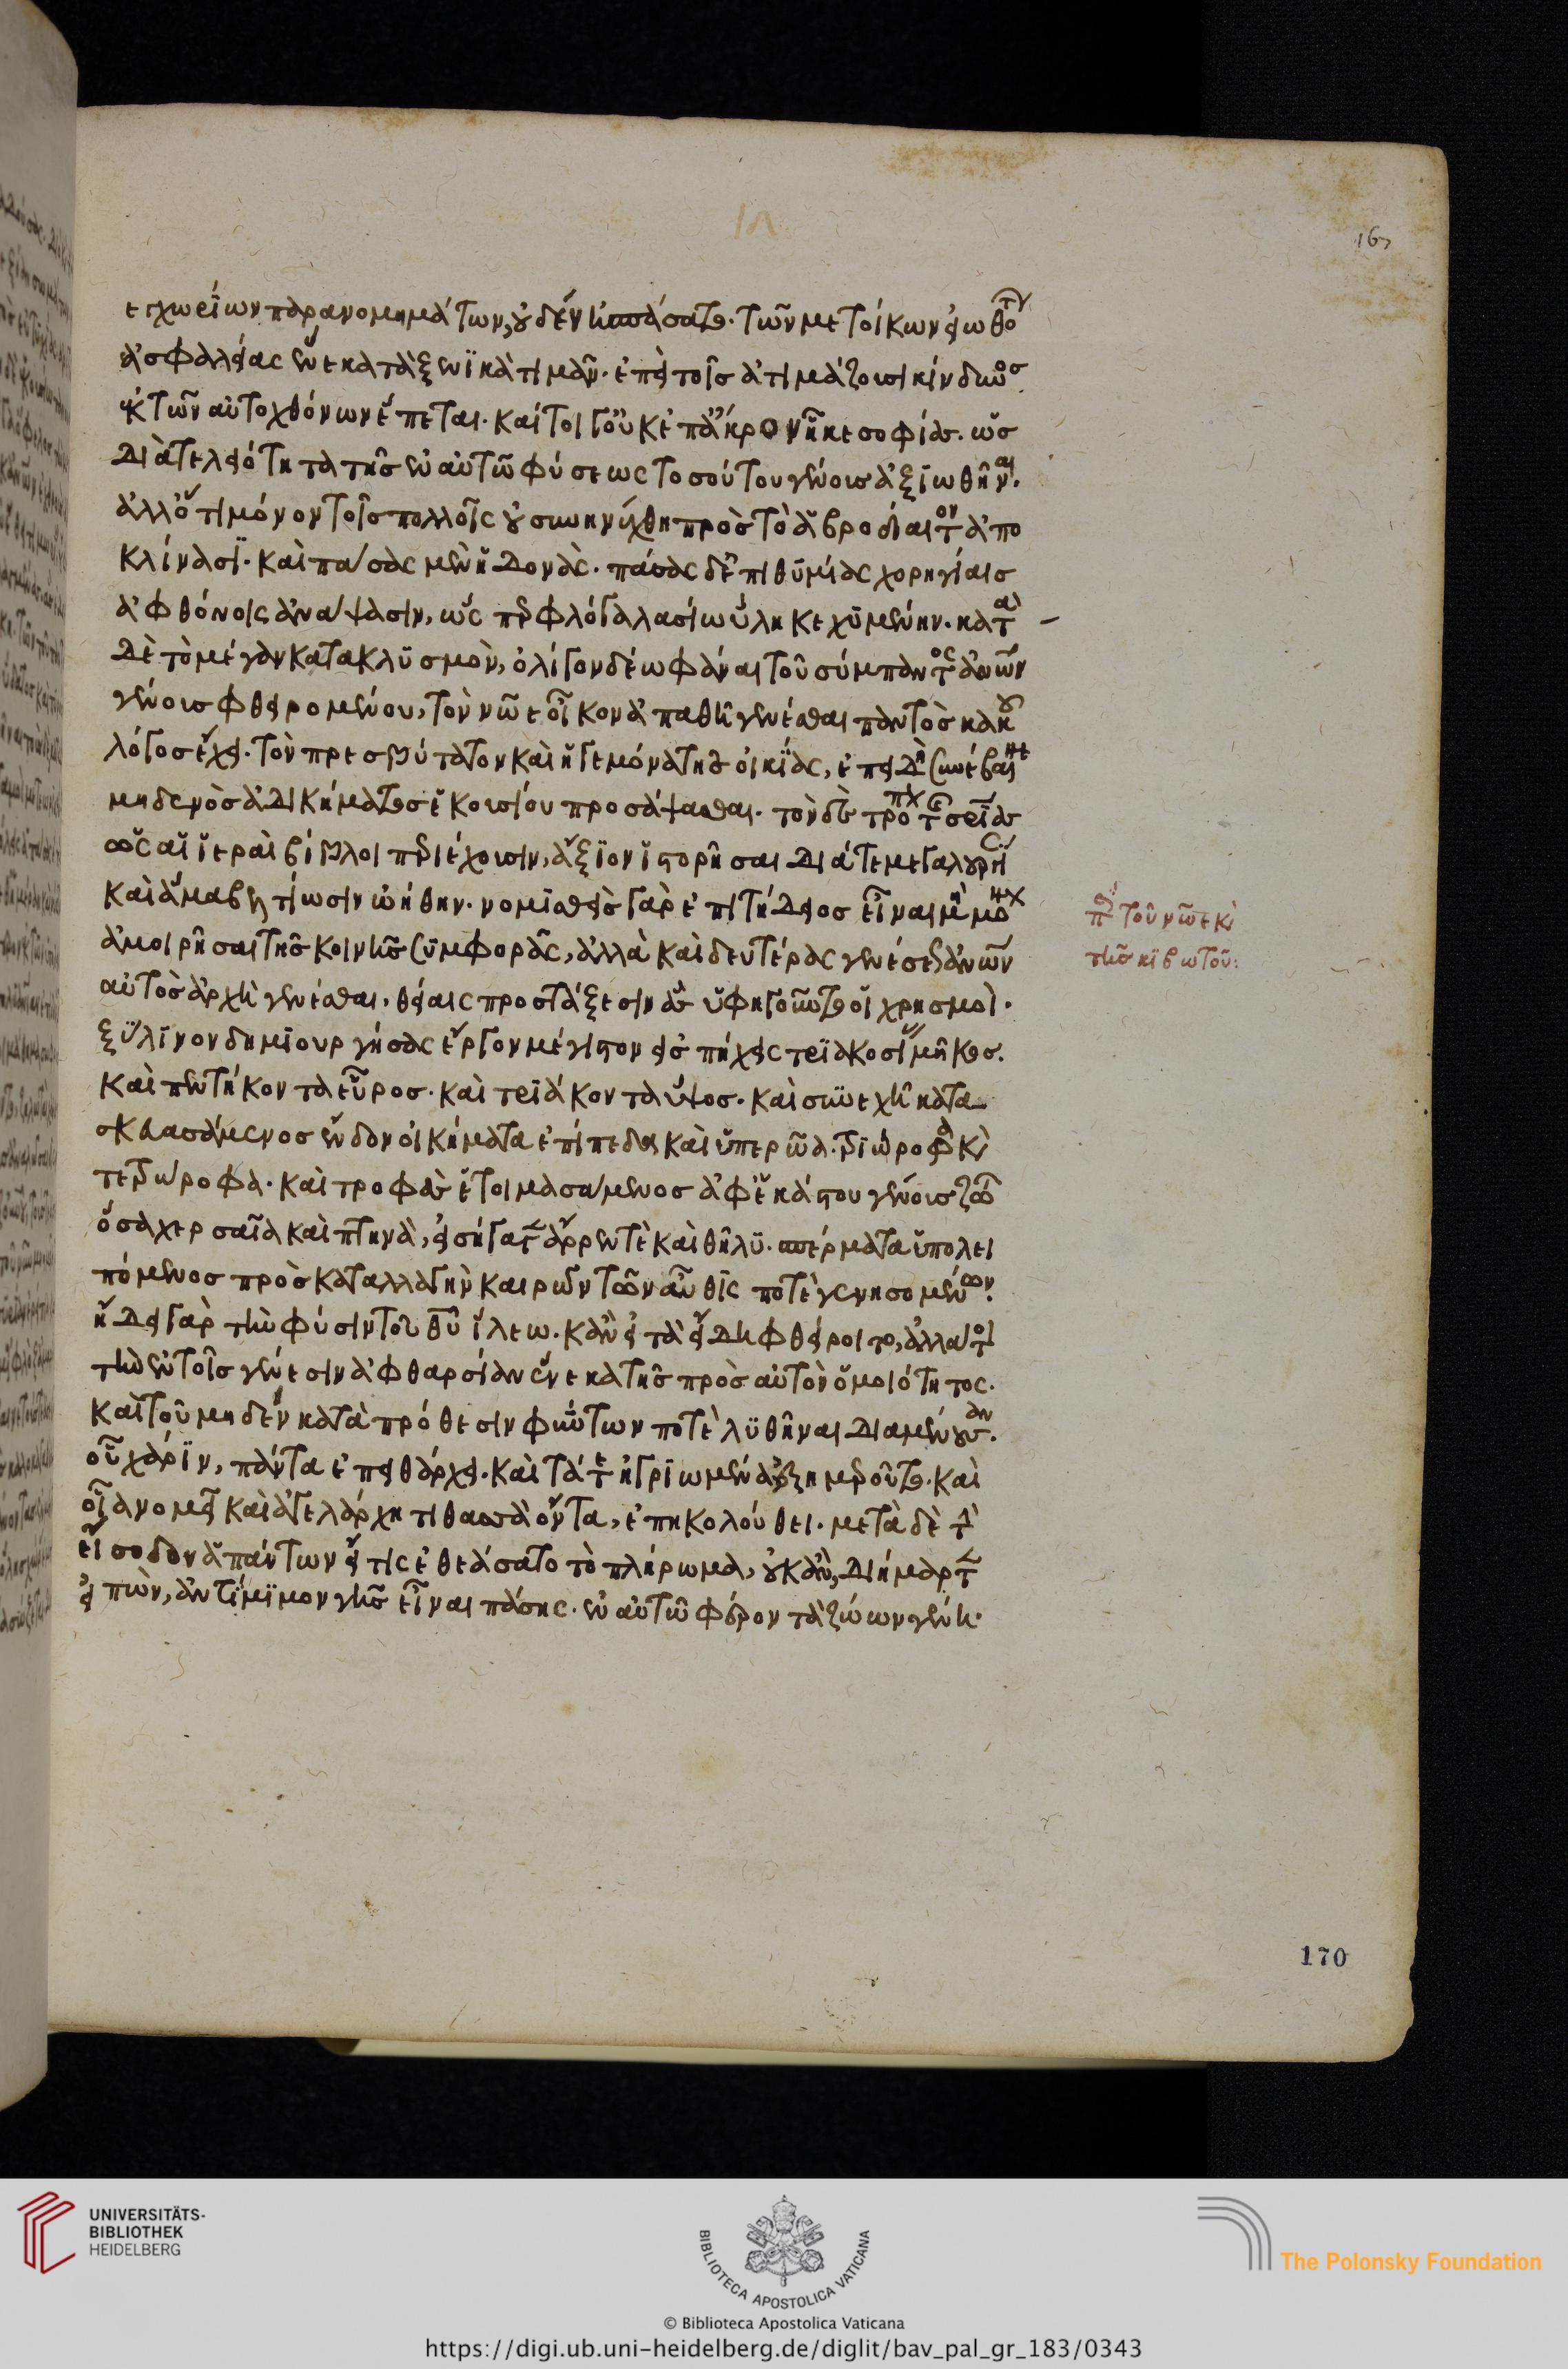 ἐγχωρίων παρανομημάτων, οὐδὲν ἠσπάσατο. τῶν μετοίκων εἰωθότ
ἀσφαλείας ἕνεκα τὰ ξενϊκὰ τιμᾶν. ἐπεὶ τοῖς ἀτιμάζουσι κίνδυνος
ἐκ τῶν αὐτοχθόνων ἕπεται. καίτοι γ' οὐκ ἐπ' ἄκρον ἧκε σοφίας. ὡς
διὰ τελειότητα τῆς ἐν αὐτῶ φύσεως τοσούτου γένους ἀξϊωθῆναι.
ἀλλ' ὅτι μόνον τοῖς πολλοῖς οὐ συνηνέχθη πρὸς τὸ ἁβροδίαιτον ἀπο
κλίνασϊ. καὶ πάσας μὲν ἡδονὰς. πάσας δ' ἐπιθϋμίας χορηγίαις
ἀφθόνοις ἀνάψασιν, ὡς περ φλόγα λασίω ὕλη κεχϋμένην. κατὰ
δὲ τὸ μέγαν κατακλϋσμὸν, ὀλίγον δέω φάναι τοῦ σύμπαντος ἀνων
γένους φθειρομένου, τὸν νῶε οἶκον ἀπαθῆ γενέσθαι παντὸς κακοῦ
λόγος ἔχει. τὸν πρεσβύτατον καὶ ἡγεμόνα τῆς οἰκίας, ἐπειδὴ συνέβαινε
μηδενὸς ἀδικήματος ἑκουσίου προσάψασθαι. τὸν δὲ τρόπ τῆς σριας
ὡς αἱ ἱεραὶ βίβλοι περιέχουσιν, ἄξϊον ἱστορῆσαι διά τε μεγαλουργί
καὶ ἅμα βελτίωσιν ὠήθην. νομϊσθεὶς γὰρ ἐπιτήδειος εἶναι μὴ μον
ἀμοιρῆσαι τῆς κοινῆς συμφορᾶς, ἀλλὰ καὶ δευτέρας γενέσεως ἀνων
αὐτὸς ἀρχὴ γενέσθαι. θείαις προστάξεσιν ἃς ὑφηγοῦντο οἱ χρησμοὶ.
ξύλϊνον δημϊουργήσας ἔργον μέγιστον εἰς πήχεις τρϊακοσίους μῆκος.
καὶ πεντήκοντα εὖρος. καὶ τρϊάκοντα ὕψος. καὶ συνεχῆ κατα
σκευασάμενος ἔνδον οἰκήματα ἐπίπεδα καὶ ὑπερῶα. τρϊώροφα κὶ
τετρώροφα. καὶ τροφὰς ἑτοιμασάμενος ἀφ' ἑκάστου γένους ζώων
ὅσα χερσαῖα καὶ πτηνὰ, εἰσήγαγεν ἄρρεν τὲ καὶ θῆλϋ. σπέρματα ὑπολει
πόμενος πρὸς καταλλαγὴν καιρῶν τῶν αὖθϊς ποτὲ γενησομένων.
ἤδει γὰρ τὴν φύσιν τοῦ θῦ ἵλεω. κἂν εἰ τὰ εἴδη φθείροιτο, ἀλλά τοι
τὴν ἐν τοῖς γένεσιν ἀφθαρσίαν ἕνεκα τῆς πρὸς αὐτὸν ὁμοιότητος.
καὶ τοῦ μηδὲν κατὰ πρόθεσιν φύντων ποτὲ λϋθῆναι διαμένουσαν.
οὗ χάρϊν, πάντα ἐπειθάρχει. καὶ τὰ τέ ἠγρϊωμένα ἐξημεροῦτο. καὶ
οἷα νομεῖ καὶ ἀγελάρχη τιθασσὰ ὄντα, ἐπηκολούθει. μετὰ δὲ τὴν
εἴσοδον ἁπάντων εἴ τις ἐθεάσατο τὸ πλήρωμα, οὐκ ἂν, διήμαρτεν
εἰπὼν, ἀντίμϊμον γῆς εἶναι πάσης. ἐν αὐτῶ φέρον τὰ ζώων γένη.
περὶ τοῦ νῶε κὶ
τῆς κϊβωτοῦ:
167
170
UNIVERSITÄTS-
BIBLIOTHEK
HEIDELBERG
BIBLIOTECA APOSTOLICA VATICANA
The Polonsky Foundation
© Biblioteca Apostolica Vaticana
https://digi.ub.uni-heidelberg.de/diglit/bav_pal_gr_183/0343